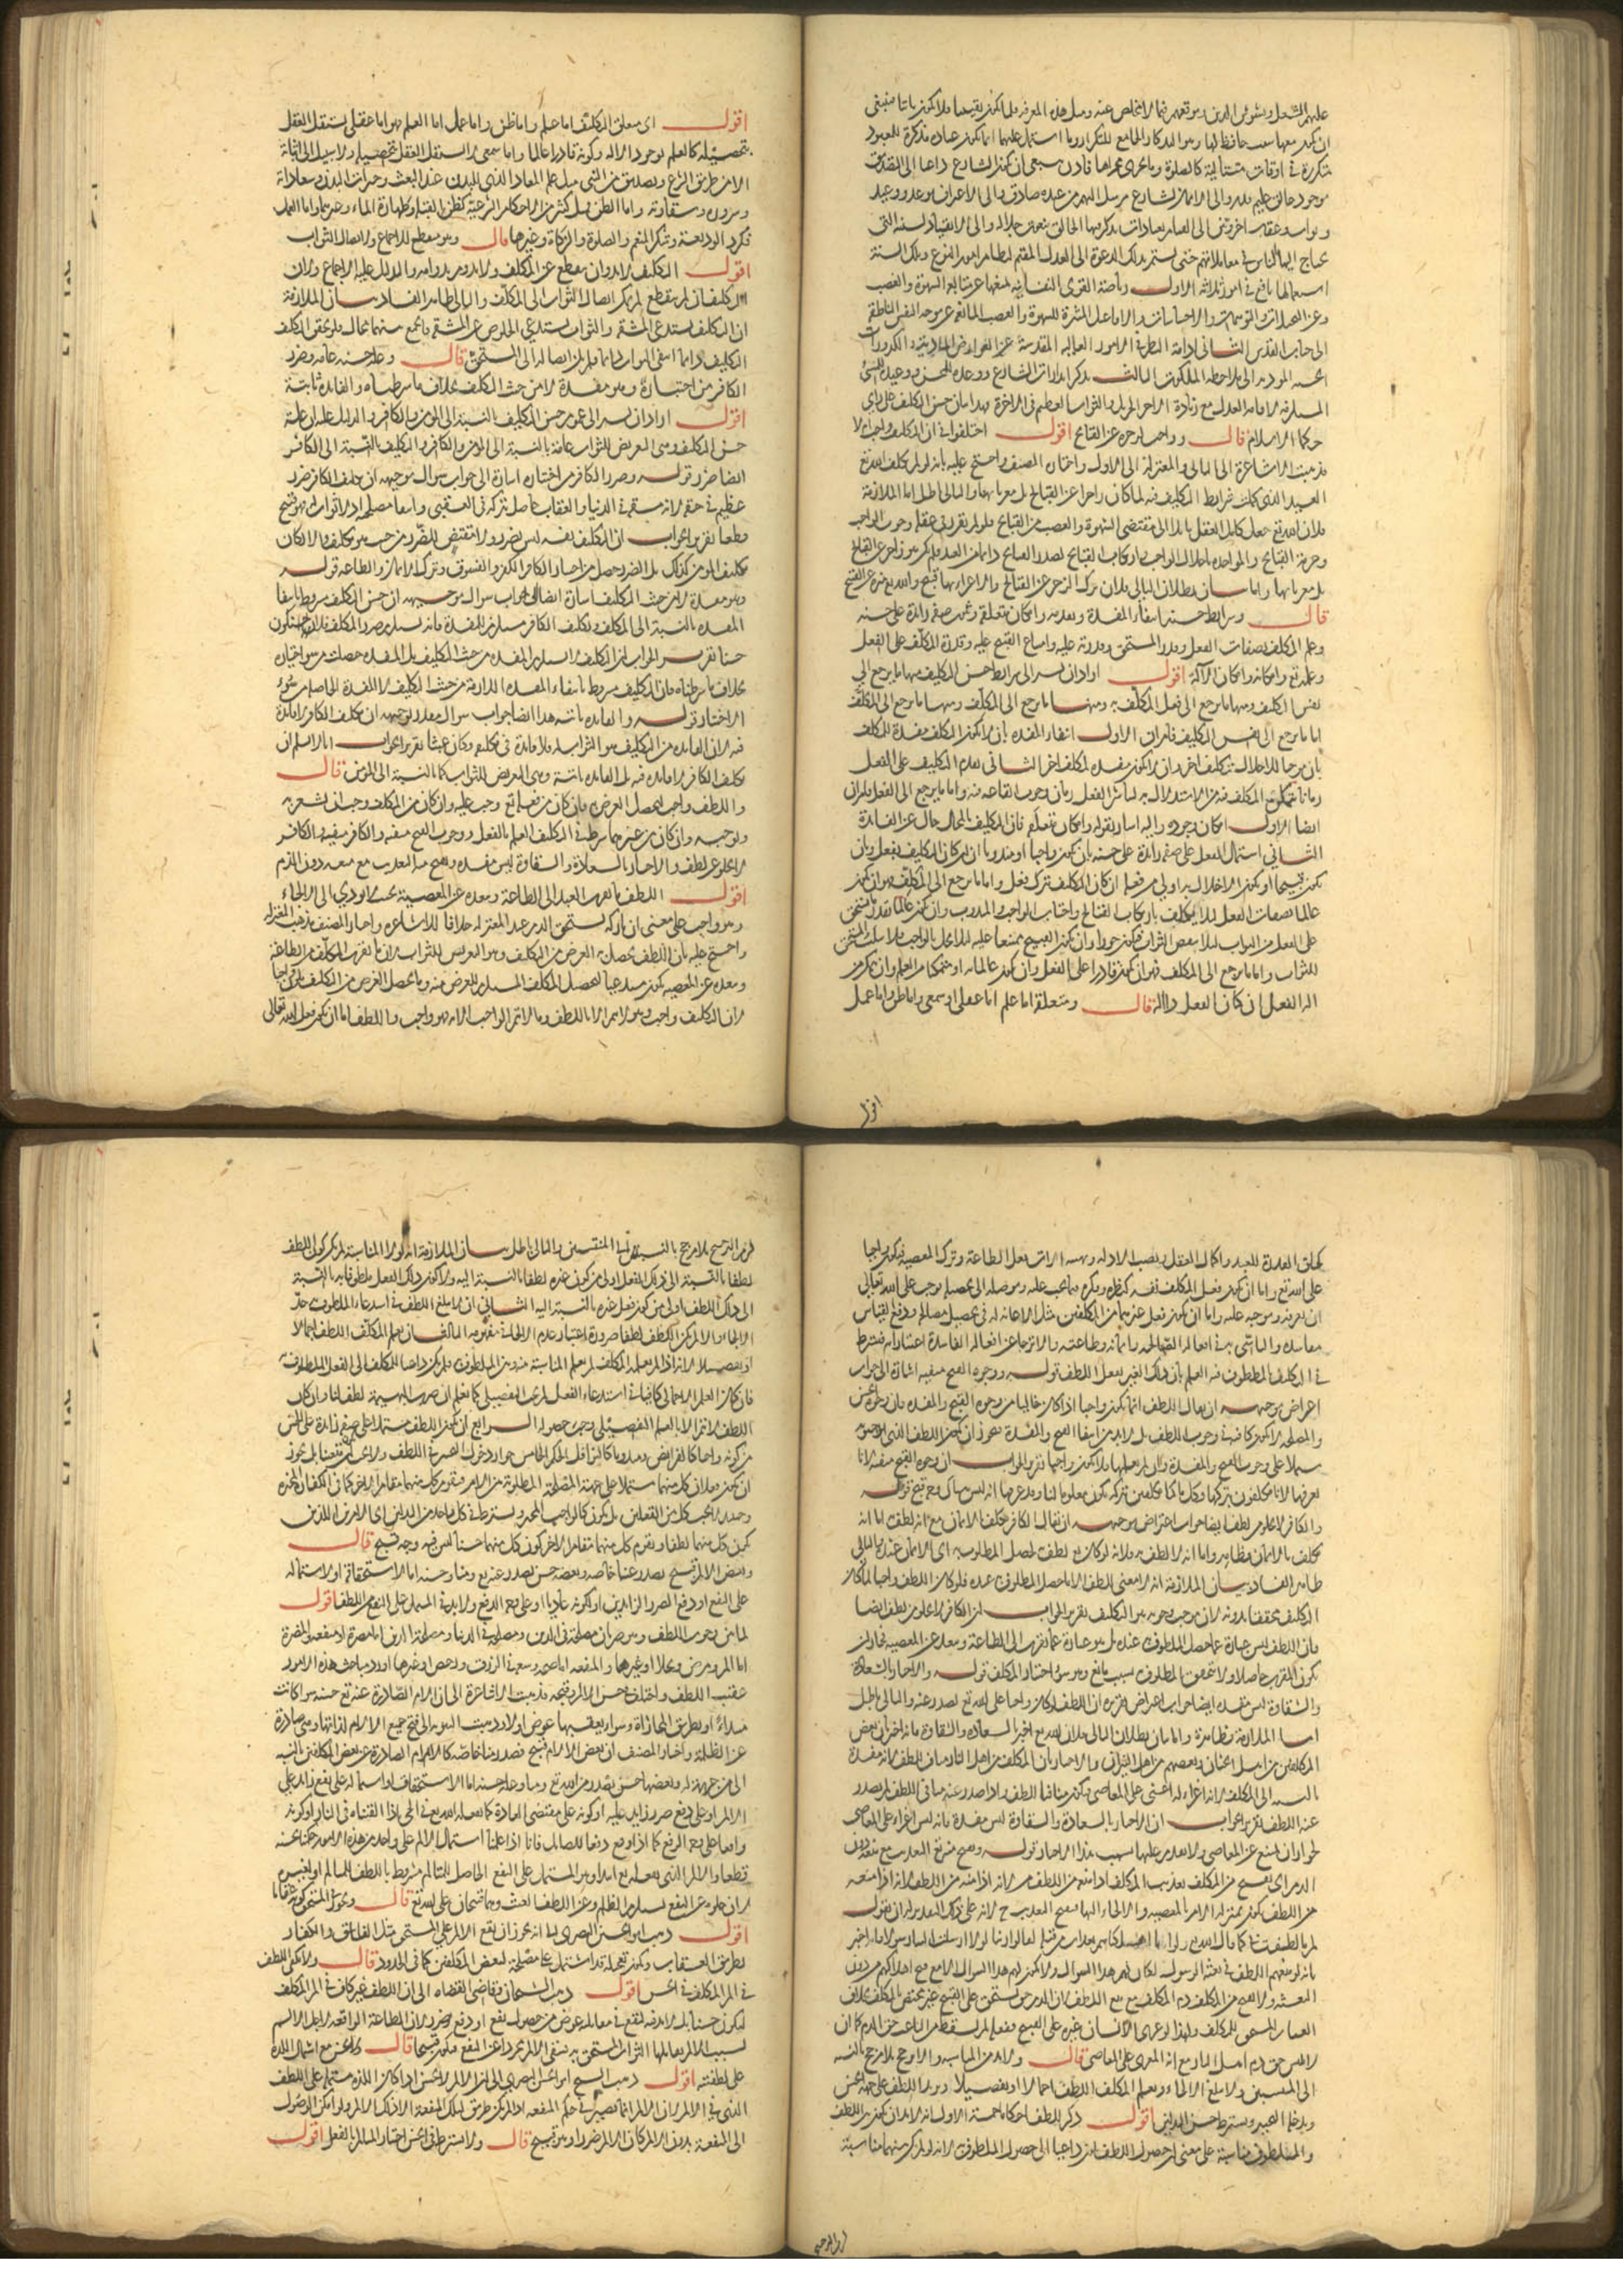 ان يكون معها سبب حافظ لها وهو التذكار الجامع للتكرار وما اشتمل عليهما انما يكون عبادة مذكرة للمعبود
متكررة في اوقات متتالية كالصلوة وما يجري مجراها فاذن ينبغي ان يكون الشارع داعيا الى التصديق
بوجود خالق عليم قدير والى الايمان بشارع مرسل اليهم من عنده صادق والى الاعتراف بوعد ووعيد
وثواب وعقاب اخرويين والى القيام بعبادات يذكر فيها الخالق بنعوت جلاله والى الانقياد لسنة التي
يحتاج اليها الناس في معاملاتهم حتى يستمر بذلك الدعوة الى العدل المقيم لنظام امور النوع وتلك السنة
استعمالها نافع في امور ثلاثة الاول رياضة القوى النفسانية بمنعها عن متابعة الشهوة والغضب
وعن التخيلات والتوهمات والاحساسات والافاعيل المثيرة للشهوة والغضب المانعة عن توجه النفس الناطقة
الى جناب القدس الثاني ادامة النظر في الامور العالية المقدسة عن العوارض المادية والكدورات
الحسية المؤدية الى ملاحظة الملكوت الثالث تذكر انذارات الشارع ووعده للمحسن ووعيده للمسيء
المستلزمة لاقامة العدل مع زيادة الاجر الجزيل والثواب العظيم في الاخرة فهذا بيان حسن التكليف على رأي
حكماء الاسلام قال وواجب لزجره عن القبائح اقول اختلفوا في ان التكليف واجب ام لا
فذهبت الاشاعرة الى الثاني والمعتزلة الى الاول واختاره المصنف واحتج عليه بانه لو لم يكلف الله تع
العبيد الذين كملت شرايط التكليف فيه لما كان زاجرا عن القبائح بل مغريا بها والتالي باطل اما الملازمة
فلان الله تع جعل كامل العقل مائلا الى مقتضى الشهوة والغضب من القبائح فلو لم يقرر في عقله وجوب الواجب
وحرمة القبائح والمؤاخذة باخلال الواجب وارتكاب القبائح لصدر القبائح دائما من العبد فلم يكن هو زاجر عن القبائح
بل مغريا بها واما بيان بطلان التالي فلان ترك الزجر عن القبائح والاغراء بها قبيح والله تع منزه عن القبيح
قال وشرايط حسنه انتفاء المفسدة وتقدمه وامكان متعلقه وثبوت صفة زائدة على حسنه
وعلم المكلف بصفات الفعل وقدر المستحق وقدرته عليه وامتناع القبيح عليه وقدرة المكلف على الفعل
وعلمه به وامكانه وامكان الآلة اقول اراد ان يشير الى شرايط حسن التكليف فمنها ما يرجع الى
نفس التكليف ومنها ما يرجع الى فعل المكلف به ومنها ما يرجع الى المكلف ومنها ما يرجع الى المكلف
اما ما يرجع الى نفس التكليف فامران الاول انتفاء المفسدة بان لا يكون المكلف مفسدة للمكلف
بان موجبا للاخلال بتكليف اخر وان لا يكون مفسدة لمكلف اخر الثاني تقدم التكليف على الفعل
زمانا يتمكن المكلف فيه من الاستدلال به ليباشر الفعل زمان وجوب ايقاعه فيه واما ما يرجع الى الفعل فامران
ايضا الاول امكان وجوده واليه اشار بقوله وامكان متعلقه فان التكليف بالمحال خال عن الفائدة
الثاني اشتمال الفعل على صفة زائدة على حسنه بان يكون واجبا او مندوبا ان كان التكليف بفعل وبان
يكون قبيحا او يكون الاخلال به اولى من فعله ان كان التكليف بترك فعل واما ما يرجع الى المكلف فهو ان يكون
عالما بصفات الفعل لئلا يكلف بارتكاب القبائح واجتناب الواجب والمندوب وان يكون عالما بقدر ما يستحق
على الفعل من الثواب لئلا ينقص الثواب فيكون جورا وان يكون القبيح ممتنعا عليه لئلا يخل بالواجب فلا يثيب المستحق
للثواب واما ما يرجع الى المكلف فهو ان يكون قادرا على الفعل وان يكون عالما به او متمكنا من العلم وان يمكن
آلة الفعل ان كان الفعل ذا آلة قال ومتعلقه اما علم اما عقلي او سمعي واما ظن واما عمل
اقول
اقول اي متعلق التكليف اما علم واما ظن واما عمل اما العلم فهو اما عقلي يستقل العقل
بتحصيله كالعلم بوجود الاله وكونه قادرا عالما واما سمعي لا يستقل العقل بتحصيله ولا سبيل الى اثباته
الا من طريق الشرع وتصديق من النبي مثل علم المعاد الذي للبدن عند البعث وخيرات البدن وسعاداته
وشروره وشقاوته واما الظن مثل كثير من الاحكام الشرعية كظن القبلة وطهارة الماء وغيرهما واما العمل
فكرد الوديعة وشكر المنعم والصلوة والزكاة وغيرها قال وهو منقطع للاجماع ولايصال الثواب
اقول التكليف لا بد وان ينقطع عن المكلف ولا يدوم بدوامه والدليل عليه الاجماع وان
التكليف لو لم ينقطع لم يمكن ايصال الثواب الى المكلف والتالي ظاهر الفساد بيان الملازمة
ان التكليف يستدعي المشقة والثواب يستدعي الخلوص عن المشقة فالجمع بينهما محال فلو تحقق التكليف
التكليف دائما انتفى الثواب دائما فلم يمكن ايصاله الى المستحق قال وعلة حسنه عامة وضرر
الكافر من اختياره وهو مفسدة لا من حيث التكليف بخلاف ما شرطناه والفائدة ثابتة
اقول اراد ان يشير الى عموم حسن التكليف بالنسبة الى المؤمن والكافر والدليل عليه ان علة
حسن التكليف وهي التعريض للثواب عامة بالنسبة الى المؤمن والكافر فالتكليف بالنسبة الى الكافر
ايضا حسن وقوله وضرر الكافر من اختياره اشارة الى جواب سؤال توجيهه ان تكليف الكافر ضرر
عظيم في حقه لانه مشقة في الدنيا والعقاب حاصل بتركه في العقبى وانتفاء مصلحة اذ لا ثواب له فهو قبيح
قطعا تقرير الجواب ان التكليف نفسه ليس بضرر ولا مقتض للضرر من حيث هو تكليف والا لكان
تكليف المؤمن كذلك بل الضرر حصل من اختيار الكافر الكفر والفسوق وترك الايمان والطاعة قوله
وهو مفسدة لا من حيث التكليف اشارة ايضا الى جواب سؤال توجيهه ان حسن التكليف مشروط بانتفاء
المفسدة بالنسبة الى المكلف وتكليف الكافر مستلزم للمفسدة فانه يستلزم ضرر المكلف فلا يكون
حسنا تقرير الجواب ان التكليف لا يستلزم المفسدة من حيث التكليف بل المفسدة حصلت من سوء اختياره
بخلاف ما شرطناه فان التكليف مشروط بانتفاء المفسدة اللازمة من حيث التكليف لا المفسدة الحاصلة من سوء
الاختيار قوله والفائدة ثابتة هذا ايضا جواب سؤال مقدر توجيهه ان تكليف الكافر لا فائدة
فيه لان الفائدة من التكليف هو الثواب ولا فائدة في تكليفه وكان عبثا تقرير الجواب انا لا نسلم ان
تكليف الكافر لا فائدة فيه بل الفائدة ثابتة وهي التعريض للثواب كما بالنسبة الى المؤمن قال
واللطف واجب لتحصيل الغرض به فان كان من فعله تع وجب عليه وان كان من المكلف وجب ان يشعر به
ويوجبه وان كان من غيرهما شرط في التكليف العلم بالفعل ووجوه القبح منتفية والكافر
لا يخلو عن لطف والاخبار بالسعادة والشقاوة ليس مفسدة ويقبح منه التعذيب مع منعه دون الذم
اقول اللطف ما يقرب العبد الى الطاعة ويبعده عن المعصية بحيث لا يؤدي الى الالجاء
وهو واجب على معنى ان تاركه يستحق الذم عند المعتزلة خلافا للاشاعرة واختار المصنف مذهب المعتزلة
واحتج عليه بان اللطف يحصل به الغرض من التكليف وهو التعريض للثواب لان ما يقرب المكلف من الطاعة
ويبعده عن المعصية يكون مستدعيا لتحصيل المكلف المستلزم للغرض منه وما يحصل الغرض من التكليف يكون واجبا
لان التكليف واجب وهو لا يتم الا باللطف وما لا يتم الواجب الا به فهو واجب واللطف اما ان يكون فعل الله تعالى
كخلق القدرة للعبد واكمال العقل ونصب الادلة وتهيئة آلات فعل الطاعة وترك المعصية فيكون واجبا
على الله تع واما ان يكون فعل المكلف نفسه كنظره وفكره فيما يجب عليه وتوصله الى تحصيله فوجب على الله تعالى
ان يعرفه ويوجبه عليه واما ان يكون فعل غيرهما من المكلفين مثل الاعانة له في تحصيل مصالحه ودفع
مفاسده والتأسي به في افعاله الصالحة وايمانه وطاعته والانزجار عن افعاله الفاسدة اعتبارا به فيشترط
في التكليف بالملطوف فيه العلم بان ذلك الغير يفعل اللطف قوله ووجوه القبح منتفية اشارة الى جواب
اعتراض توجيهه ان يقال اللطف انما يكون واجبا اذا كان خاليا من وجوه القبح والمفسدة فان وجوه الحسن
والمصلحة لا يكون كافية في وجوب اللطف بل لا بد من انتفاء القبح والمفسدة فيجوز ان يكون اللطف الذي
مشتملا على وجوه القبح والمفسدة وان لم نعلمها فلا يكون واجبا تقرير الجواب ان وجوه القبح منتفية لانا
نعرفها لانا مكلفون بتركها وكل ما كنا مكلفين بتركه يكون معلوما لنا وقد عرفنا انه ليس هناك وجه قبح قوله
والكافر لا يخلو من لطف ايضا جواب اعتراض توجيهه ان يقال الكافر مكلف بالايمان مع انه لطف اما انه
مكلف بالايمان فظاهر واما انه لا لطف به فلانه لو كان به لطف لحصل الملطوف به اي الايمان عنده والتالي
ظاهر الفساد بيان الملازمة انه لا معنى للطف الا ما حصل الملطوف عنده فلو كان اللطف واجبا لما كان
التكليف متحققا بدونه لان موجب وجوبه هو التكليف تقرير الجواب ان الكافر لا يخلو من لطف ايضا
فان اللطف ليس عبارة عما حصل الملطوف عنده بل هو عبارة عما يقرب الى الطاعة ويبعد عن المعصية فجاز ان
يكون المقرب حاصلا ولا يتحقق المطلوب بسبب مانع وهو سوء اختيار المكلف قوله والاخبار بالسعادة
والشقاوة ليس مفسدة ايضا جواب اعتراض تقريره ان اللطف لو كان واجبا على الله تع لصدر عنه والتالي باطل
اما الملازمة فظاهرة واما بيان بطلان التالي فلان الله تع اخبر بالسعادة والشقاوة فانه اخبر بان بعض
المكلفين من اهل الجنان وبعضهم من اهل النيران والاخبار بان المكلف من اهل النار مناف اللطف لانه مفسدة
بالنسبة الى المكلف لانه اغراء له اعني على المعاصي فيكون منافيا اللطف واذا صدر عنه منافي اللطف لم يصدر
عنه اللطف تقرير الجواب ان الاخبار بالسعادة والشقاوة ليس مفسدة فانه ليس اغراء على المعاصي
لجواز ان يمتنع عن المعاصي ولا يقدم عليها بسبب هذا الاخبار قوله ويقبح منه تع التعذيب مع منعه دون
الذم اي يقبح من المكلف تعذيب المكلف اذا منعه من اللطف لانه اذا منعه
من اللطف يكون بمنزلة الامر بالمعصية والالجاء اليها فيقبح التعذيب ح لانه على ذلك التقدير له ان يقول
لم ما لطفت بنا كما قال الله تع ولو انا اهلكناهم بعذاب من قبله لقالوا ربنا لولا ارسلت الينا رسولا اخبر
بانه لو منعهم اللطف في بعثة الرسول لكان لهم هذا السؤال ولا يكون لهم هذا السؤال الا مع قبح اهلاكهم من دون
البعثة ولا يقبح من المكلف ذم المكلف مع منع اللطف لان الذم حق مستحق على القبيح غير مختص بالمكلف بخلاف
العقاب المستحق للمكلف ولهذا لو بعث الانسان غيره على القبيح ففعله لم يسقط من الباعث حق الذم كما ان
لابليس حق ذم اهل النار مع انه المغري على المعاصي قال ولا بد من المناسبة والا ترجح بلا مرجح بالنسبة
الى المنتسبين ولا يبلغ الالجاء ويعلم المكلف اللطف اجمالا او تفصيلا ويزيد اللطف على جهة الحسن
ويدخله التخيير ويشترط حسن البدلين اقول ذكر للطف احكاما خمسة الاول انه لا بد ان يكون بين اللطف
والملطوف مناسبة على معنى ان حصول اللطف يكون داعيا الى حصول الملطوف لانه لو لم يكن بينهما مناسبة
لزم الترجيح بلا مرجح بالنسبة الى المنتسبين والتالي باطل بيان الملازمة انه لولا المناسبة لم يكن كون اللطف
لطفا بالنسبة الى ذلك الفعل اولى من كون غيره لطفا بالنسبة اليه ولا كون ذلك الفعل ملطوفا به بالنسبة
الى ذلك اللطف اولى من كون فعل غيره بالنسبة اليه الثاني ان لا يبلغ اللطف في استدعاء الملطوف حد
الالجاء والا لم يكن اللطف لطفا ضرورة اعتبار عدم الالجاء في مفهومه الثالث ان يعلم المكلف اللطف اجمالا
او تفصيلا لانه اذا لم يعلمه المكلف لم يعلم المناسبة بينه وبين الملطوف فلم يكن داعيا للمكلف الى الفعل الملطوف فيه
فان كان العلم الاجمالي كافيا في استدعاء الفعل لم يجب التفصيلي كما نعلم ان ضرب البهيمة لطف لنا وان كان
اللطف لا يتم الا بالعلم التفصيلي وجب حصوله الرابع ان يكون اللطف مشتملا على صفة زائدة على الحسن
من كونه واجبا كالفرايض ومندوبا كالنوافل الحكم الخامس جواز دخول التخيير في اللطف ولا يجب
ان يكون معينا بل يجوز
وحينئذ لا يجب كل من الفعلين بل يكون كالواجب المخير ويشترط في كل واحد من البدلين اي الامرين اللذين
يكون كل منهما لطفا ويقوم كل منهما مقام الاخر كون كل منهما حسنا ليس فيه وجه قبح قال
وبعض الالم قبيح يصدر عنا خاصة وبعضه حسن يصدر عنه تع ومنا وحسنه اما لاستحقاقه او لاشتماله
على النفع او دفع الضرر الزائدين او لكونه عاديا او على وجه الدفع ولا بد في المشتمل على النفع من اللطف اقول
لما بين وجوب اللطف وهو ضربان مصلحة في الدين ومصلحة في الدنيا ومصلحة الدين اما مضرة او منفعة والمضرة
اما الم ومرض وغلاء او غيرها والمنفعة اما صحة وسعة في الرزق ورخص او غيرها اورد مباحث هذه الامور
عقيب اللطف واختلف في حسن الالم وقبحه فذهبت الاشاعرة الى ان الالام الصادرة عنه تع حسنة سواء كانت
مبتدأة او بطريق المجازاة وسواء يعقبها عوض او لا وذهبت الثنوية الى قبح جميع الالام لذاتها وهي صادرة
عن الظلمة واختار المصنف ان بعض الالام قبيح يصدر منا خاصة كالالام الصادرة عن بعض المكلفين بالنسبة
الى من غير جرمة له وبعضها حسن يصدر من الله تع ومنا وعلة حسنه اما الاستحقاق او اشتماله على نفع زائد على
الالم او على دفع ضرر زايد عليه او كونه على مقتضى العادة كما يفعله الله تع في الحي اذا القيناه في النار او كونه
واقعا على وجه الدفع كما اذا وقع دفعا للصايل فانا اذا علمنا اشتمال الالم على واحد من هذه الامور حكمنا بحسنه
قطعا والالم الذي يفعله تع ابتداء وهو المشتمل على النفع الحاصل للمتألم مشروط باللطف للمتألم او لغيره
لان خلوه عن النفع يستلزم الظلم وعن اللطف العبث وهما قبيحان على الله تع قال ويجوز في المستحق كونه عقابا
اقول ذهب ابو الحسين البصري الى انه يجوز ان يقع الالم على المستحق مثل الفاسق والكفار
بطريق العقاب ويكون تعجيله قد اشتمل على مصلحة لبعض المكلفين كما في الحدود قال ولا يكفي اللطف
في الم المكلف في الحسن اقول ذهب الشيخان وقاضي القضاة الى ان اللطف غير كاف في الم المكلف
ليكون حسنا بل لا بد فيه لنفع في مقابله عوض من حصول نفع او دفع ضرر لان الطاعة الواقعة لاجل الالم
بسبب الالم يقابلها الثواب المستحق به فينتفي الالم مجردا عن النفع فيكون قبيحا قال ولا يحسن مع اشتمال اللذة
على لطفيته اقول ذهب الشيخ ابو الحسين البصري الى ان الالم لا يحسن اذا كان اللذة مشتملة على اللطف
الذي في الالم لان الالم انما يصير في حكم المنفعة اذا لم يكن طريق لتلك المنفعة الا ذلك الالم ولو امكن الوصول
الى المنفعة بدون الالم كان الالم ضررا وهو قبيح قال ولا يشترط في الحسن اختيار المتألم بالفعل اقول